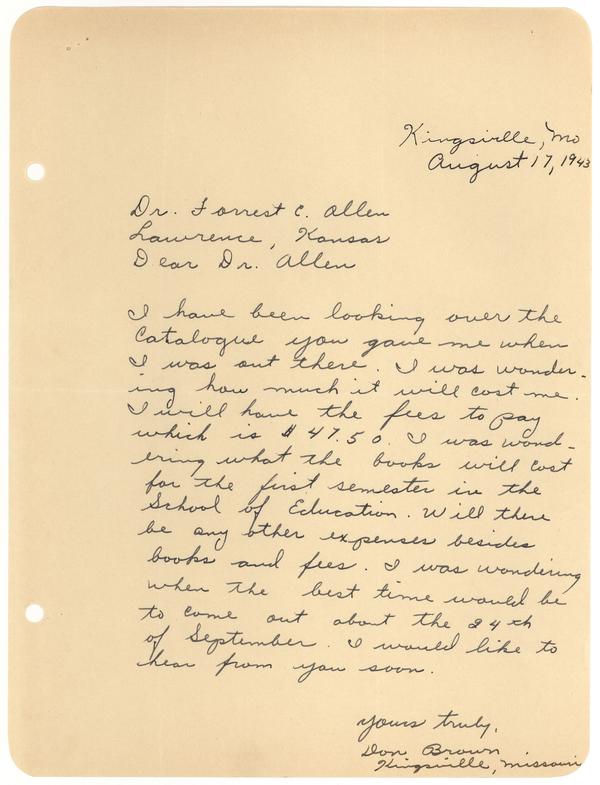 Kingsville, Mo
August 17, 1943
Dr. Forrest C. Allen
Lawrence, Kansas
Dear Dr. Allen
I have been looking over the
Catalogue you gave me when
I was out there. I was wonder-
ing how much it will cost me.
I will have the fees to pay
which is $47.50. I was wond-
ering what the books will cost
for the first semester in the
School of Education. Will there
be any other expenses besides
books and fees. I was wondering
when the best time would be
to come out about the 24th
of September. I would like to
hear from you soon.
Yours truly,
Don Brown
Kingsville, Missouri